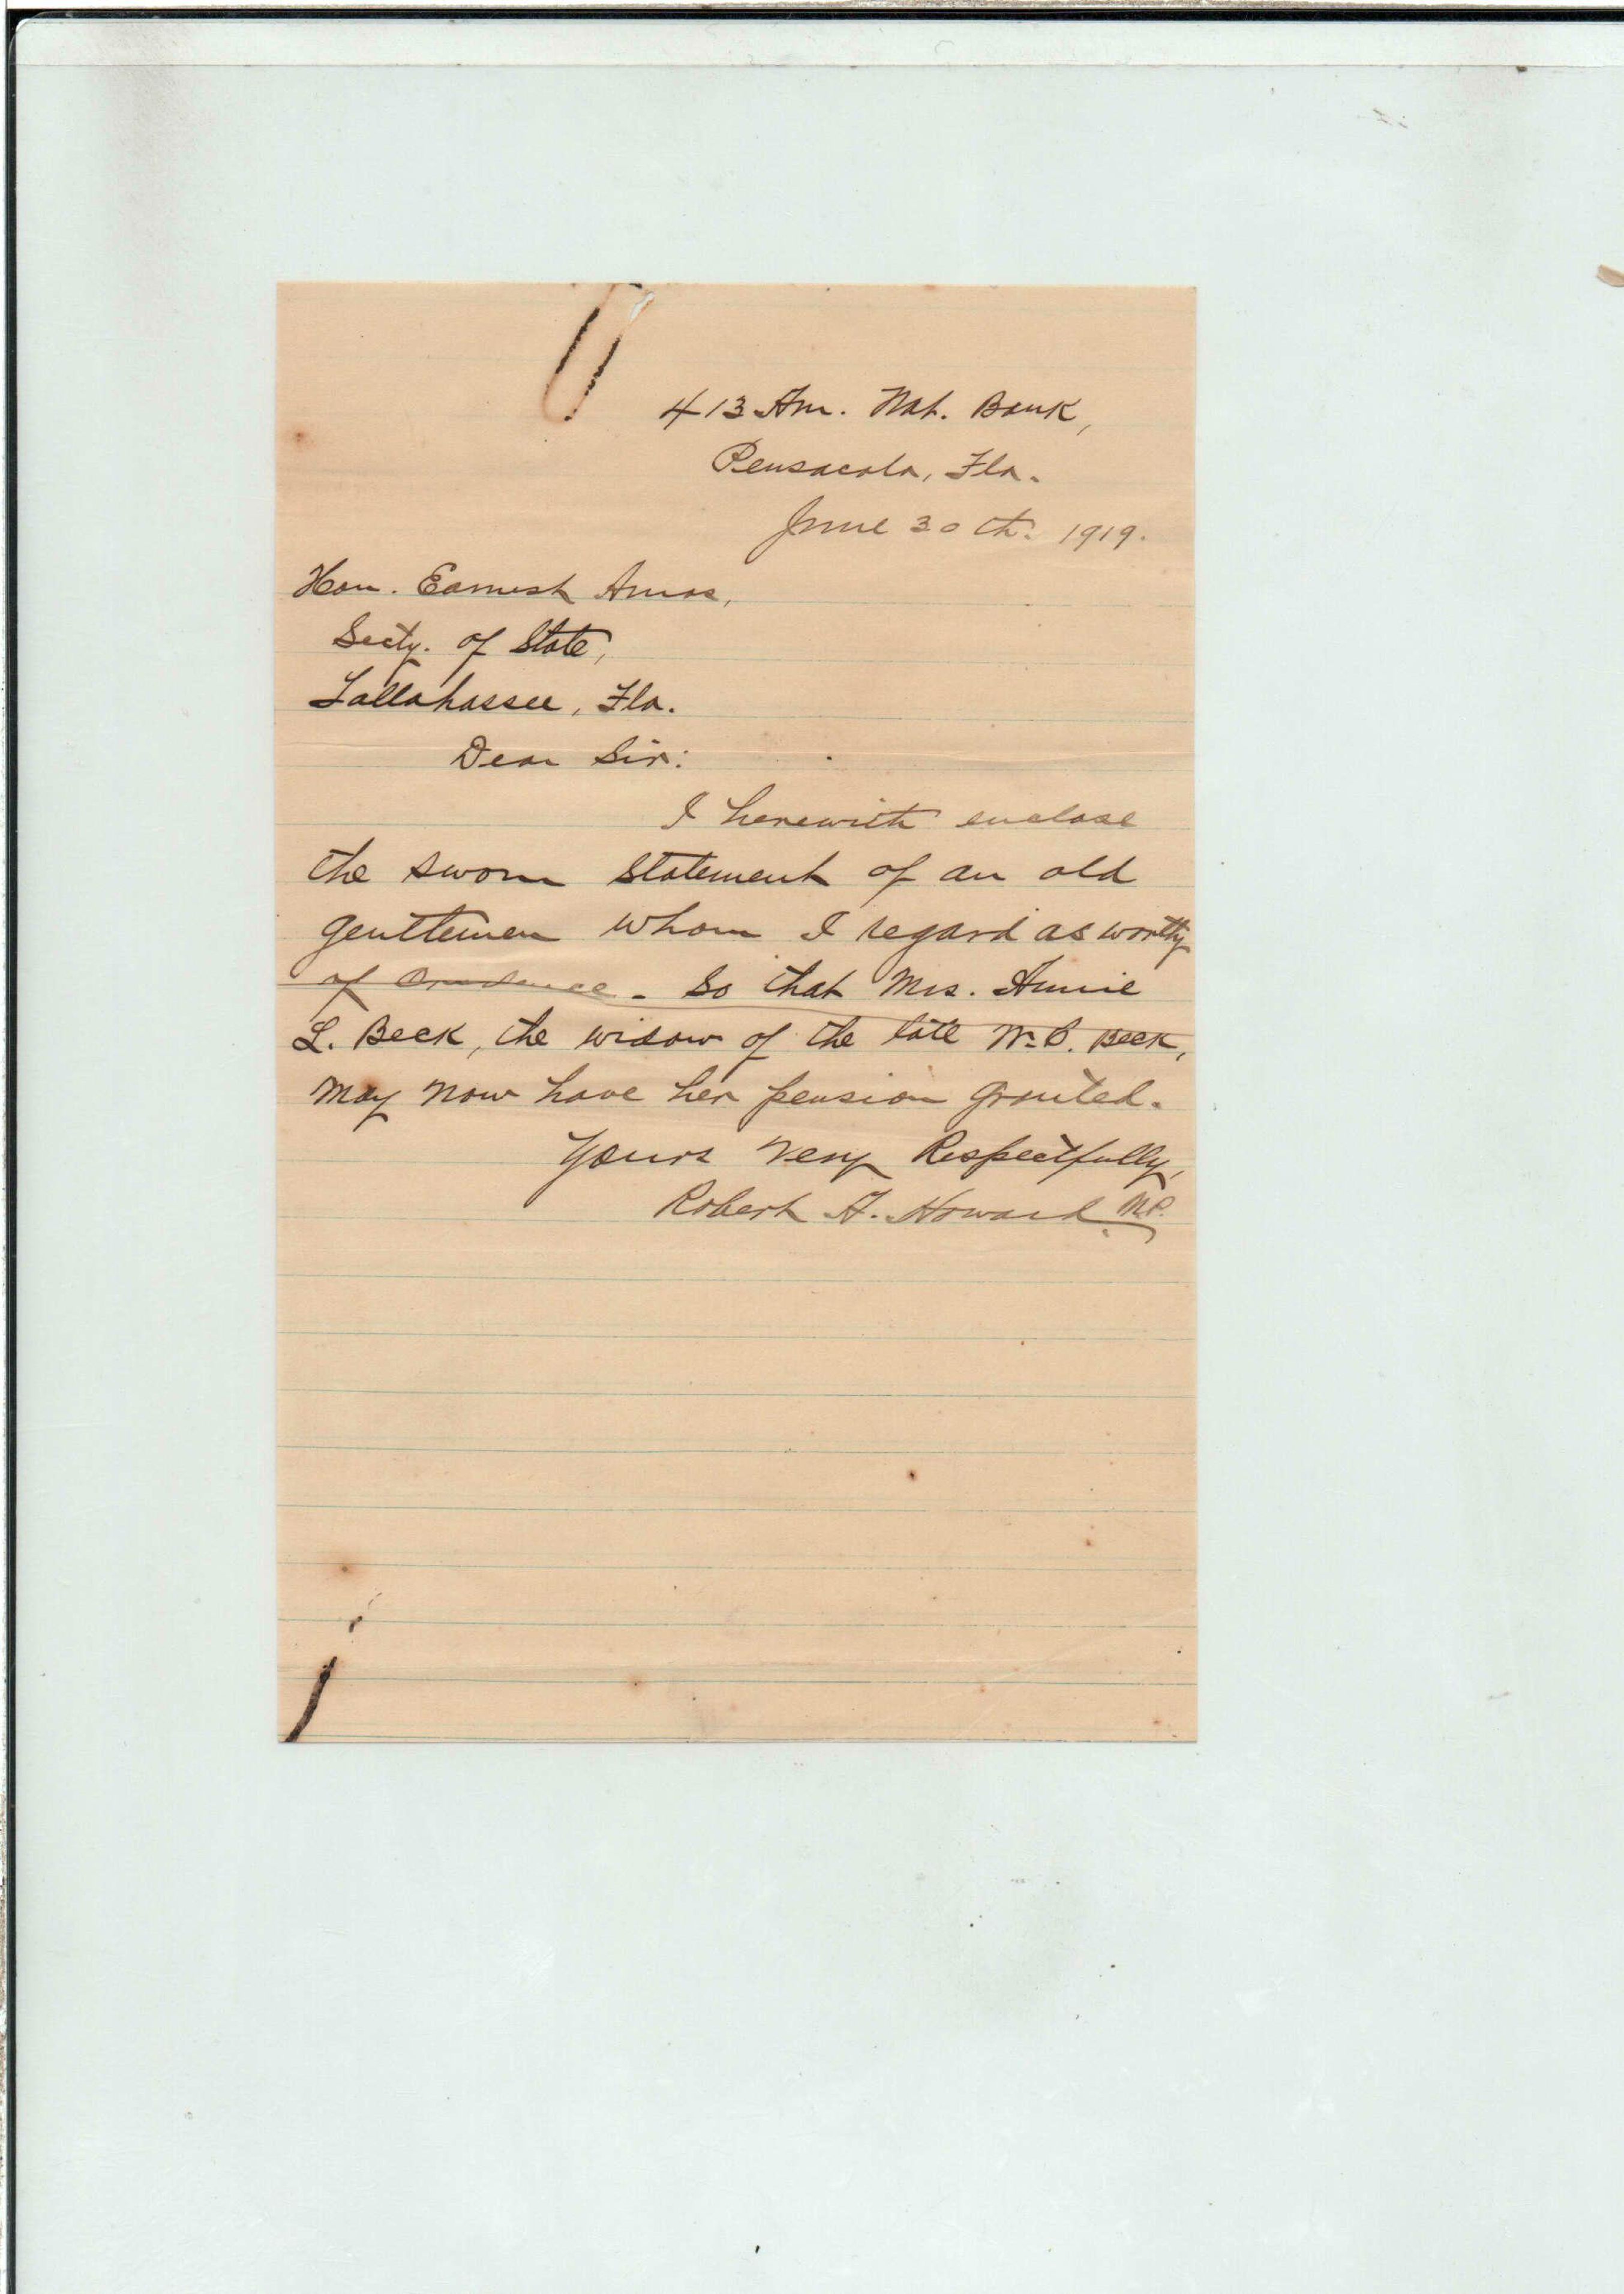 413 Am. Nat. Bank,
Pensacola, Fla.
June 30th. 1919.
Hon. Earnest Amos,
Secty. of State,
Tallahassee, Fla.
Dear Sir:
I herewith enclose
the sworn statement of an old
gentlemen whom I regard as worthy
of credence - so that Mrs. Annie
L. Beck, the widow of the late W. B. Beck,
may now have her pension granted.
Yours very Respectfully,
Robert A. Howard M.P.